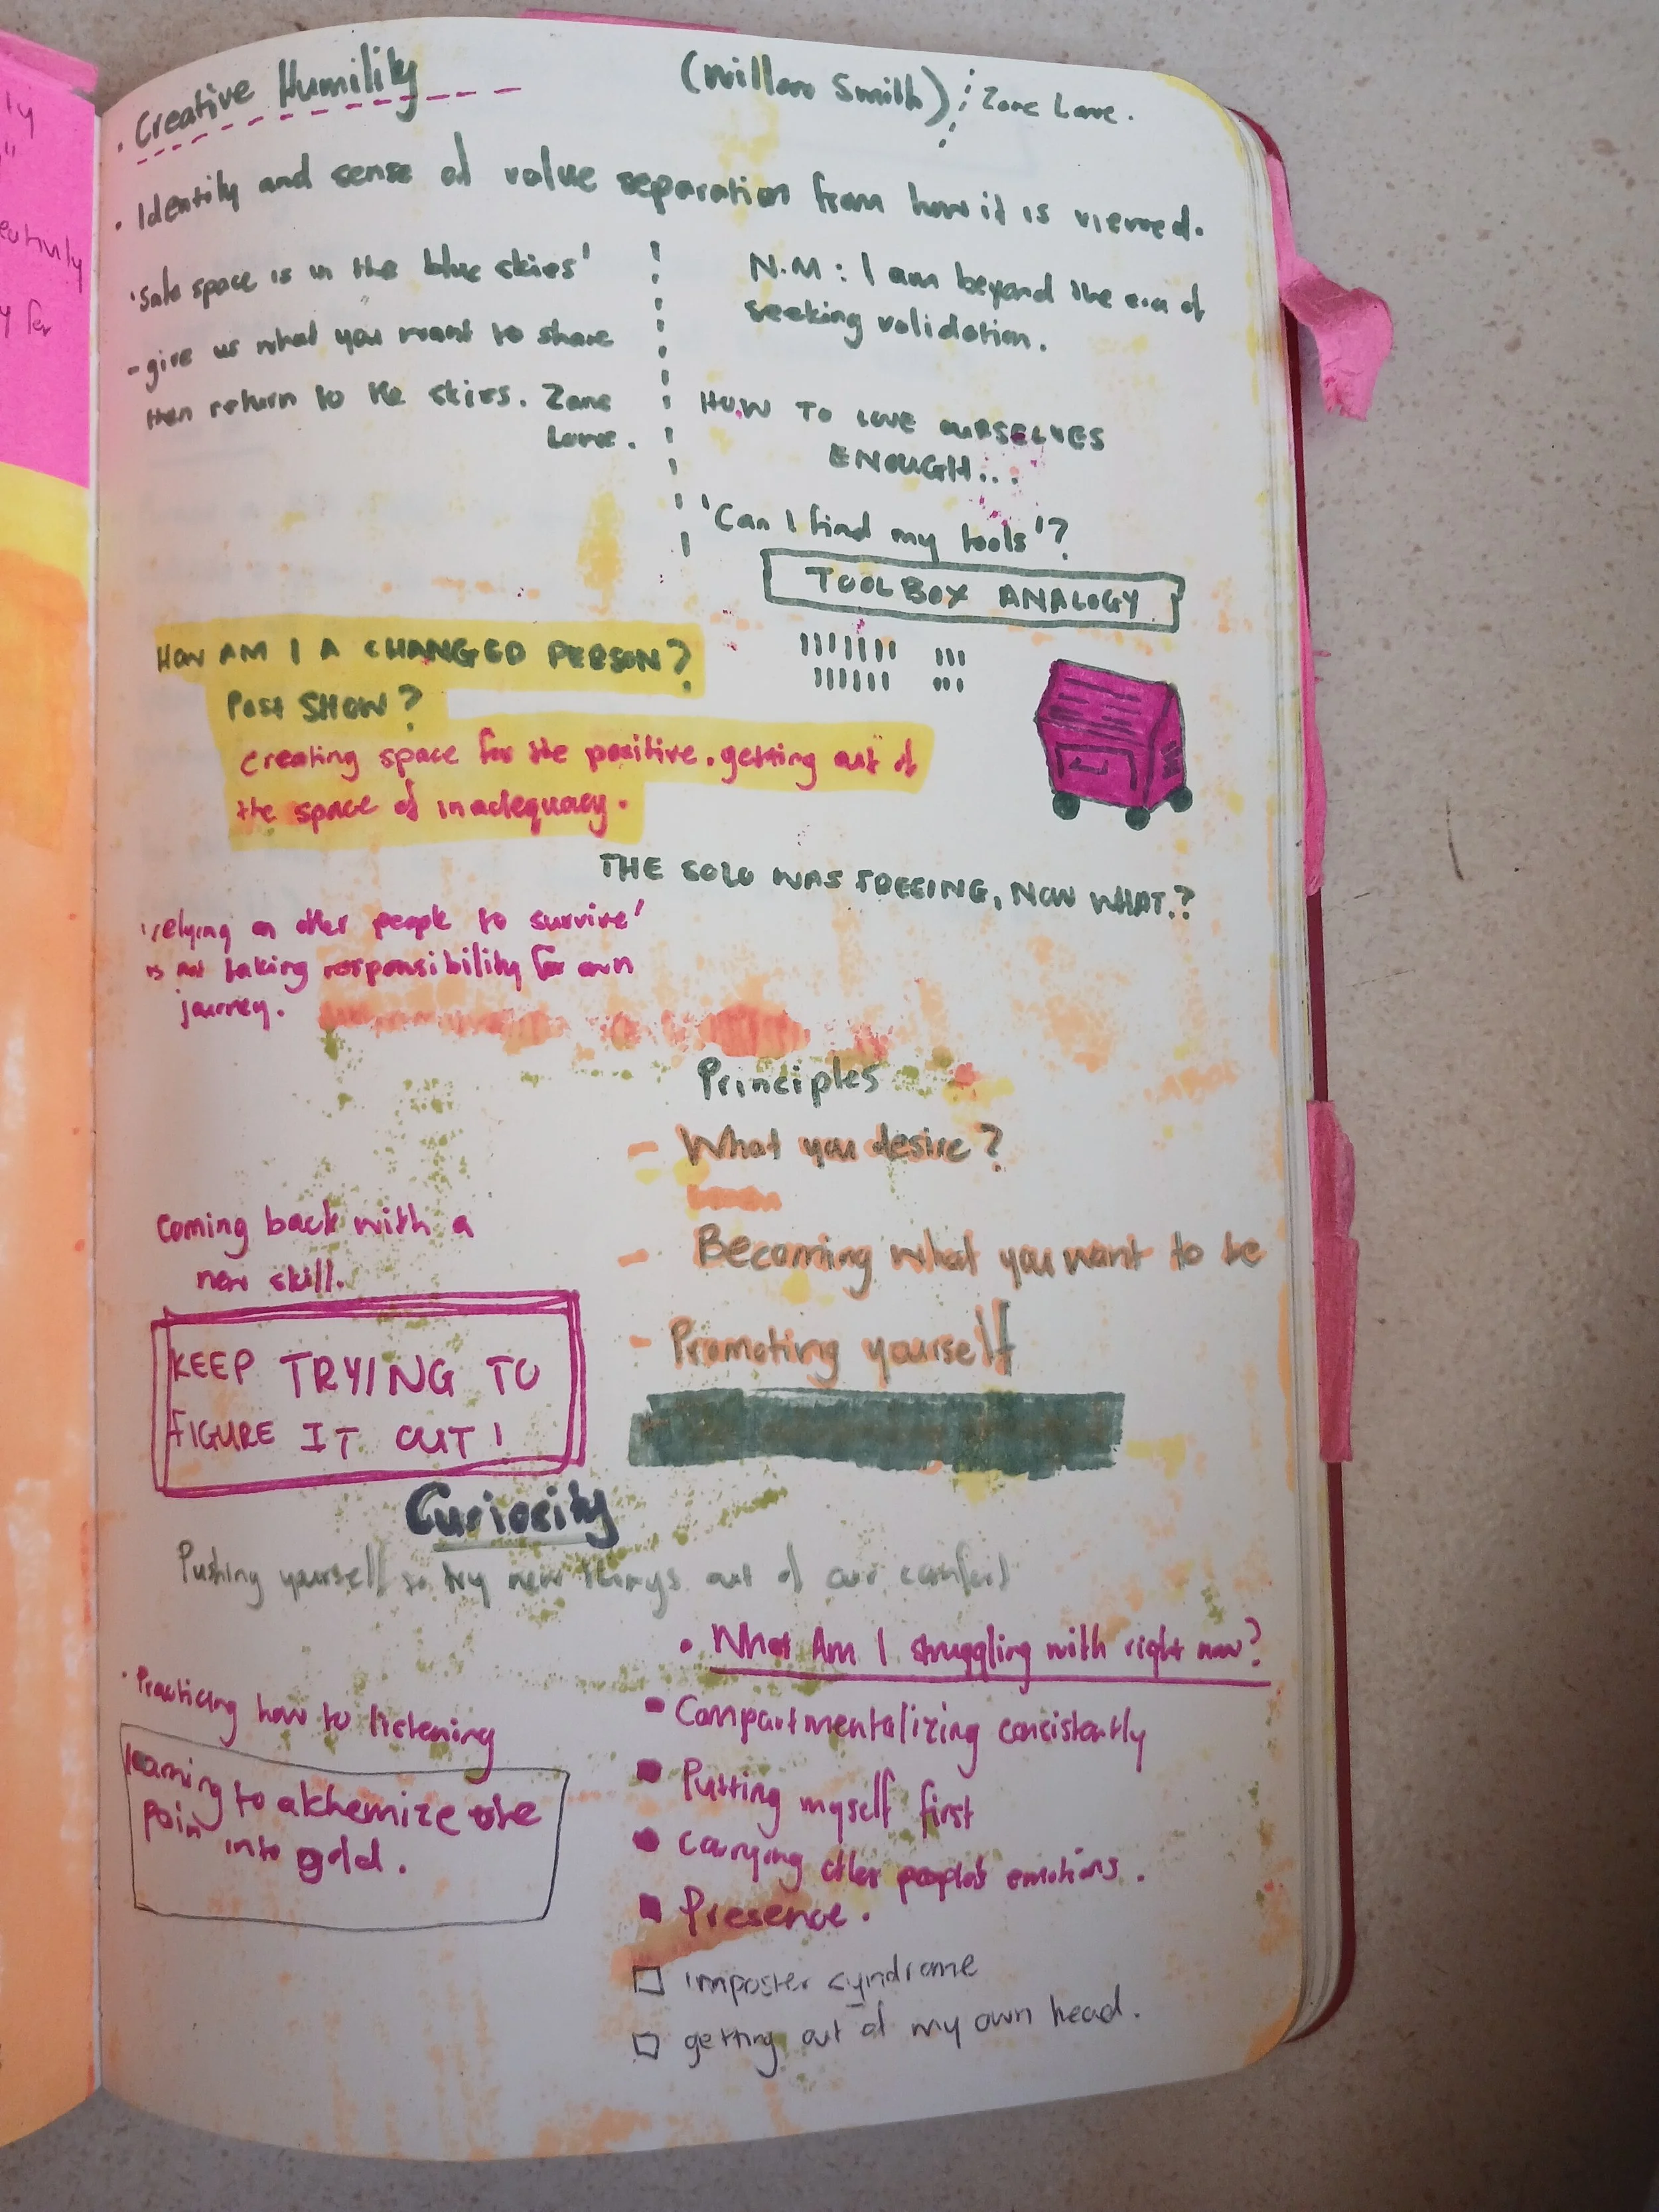 ly
"
y for
· Creative Humility
(Willow Smith) Zane Lowe.
· Identity and sense of value separation from how it is viewed.
'Safe space is in the blue skies'
- give us what you want to share
then return to the skies. Zane
Lowe.
N.M: I am beyond the era of
seeking validation.
HOW TO LOVE OURSELVES
ENOUGH...
'Can I find my tools'?
TOOLBOX ANALOGY
HOW AM I A CHANGED PERSON?
Post SHOW?
creating space for the positive. getting out of
the space of inadequacy.
THE SOLO WAS FREEING, NOW WHAT?
'relying on other people to survive'
is not taking responsibility for own
journey.
Principles
- What you desire?
- Becoming what you want to be
- Promoting yourself
Coming back with a
new skill.
KEEP TRYING TO
FIGURE IT OUT!
Curiocity
Pushing yourself to try new things out of our comfort
· Practicing how to listening
learning to alchemize the
pain into gold.
• What Am I struggling with right now?
▪ Compartmentalizing consistently
▪ Putting myself first
• Carrying other people's emotions.
▪ Presence.
□ imposter syndrome
□ getting out of my own head.